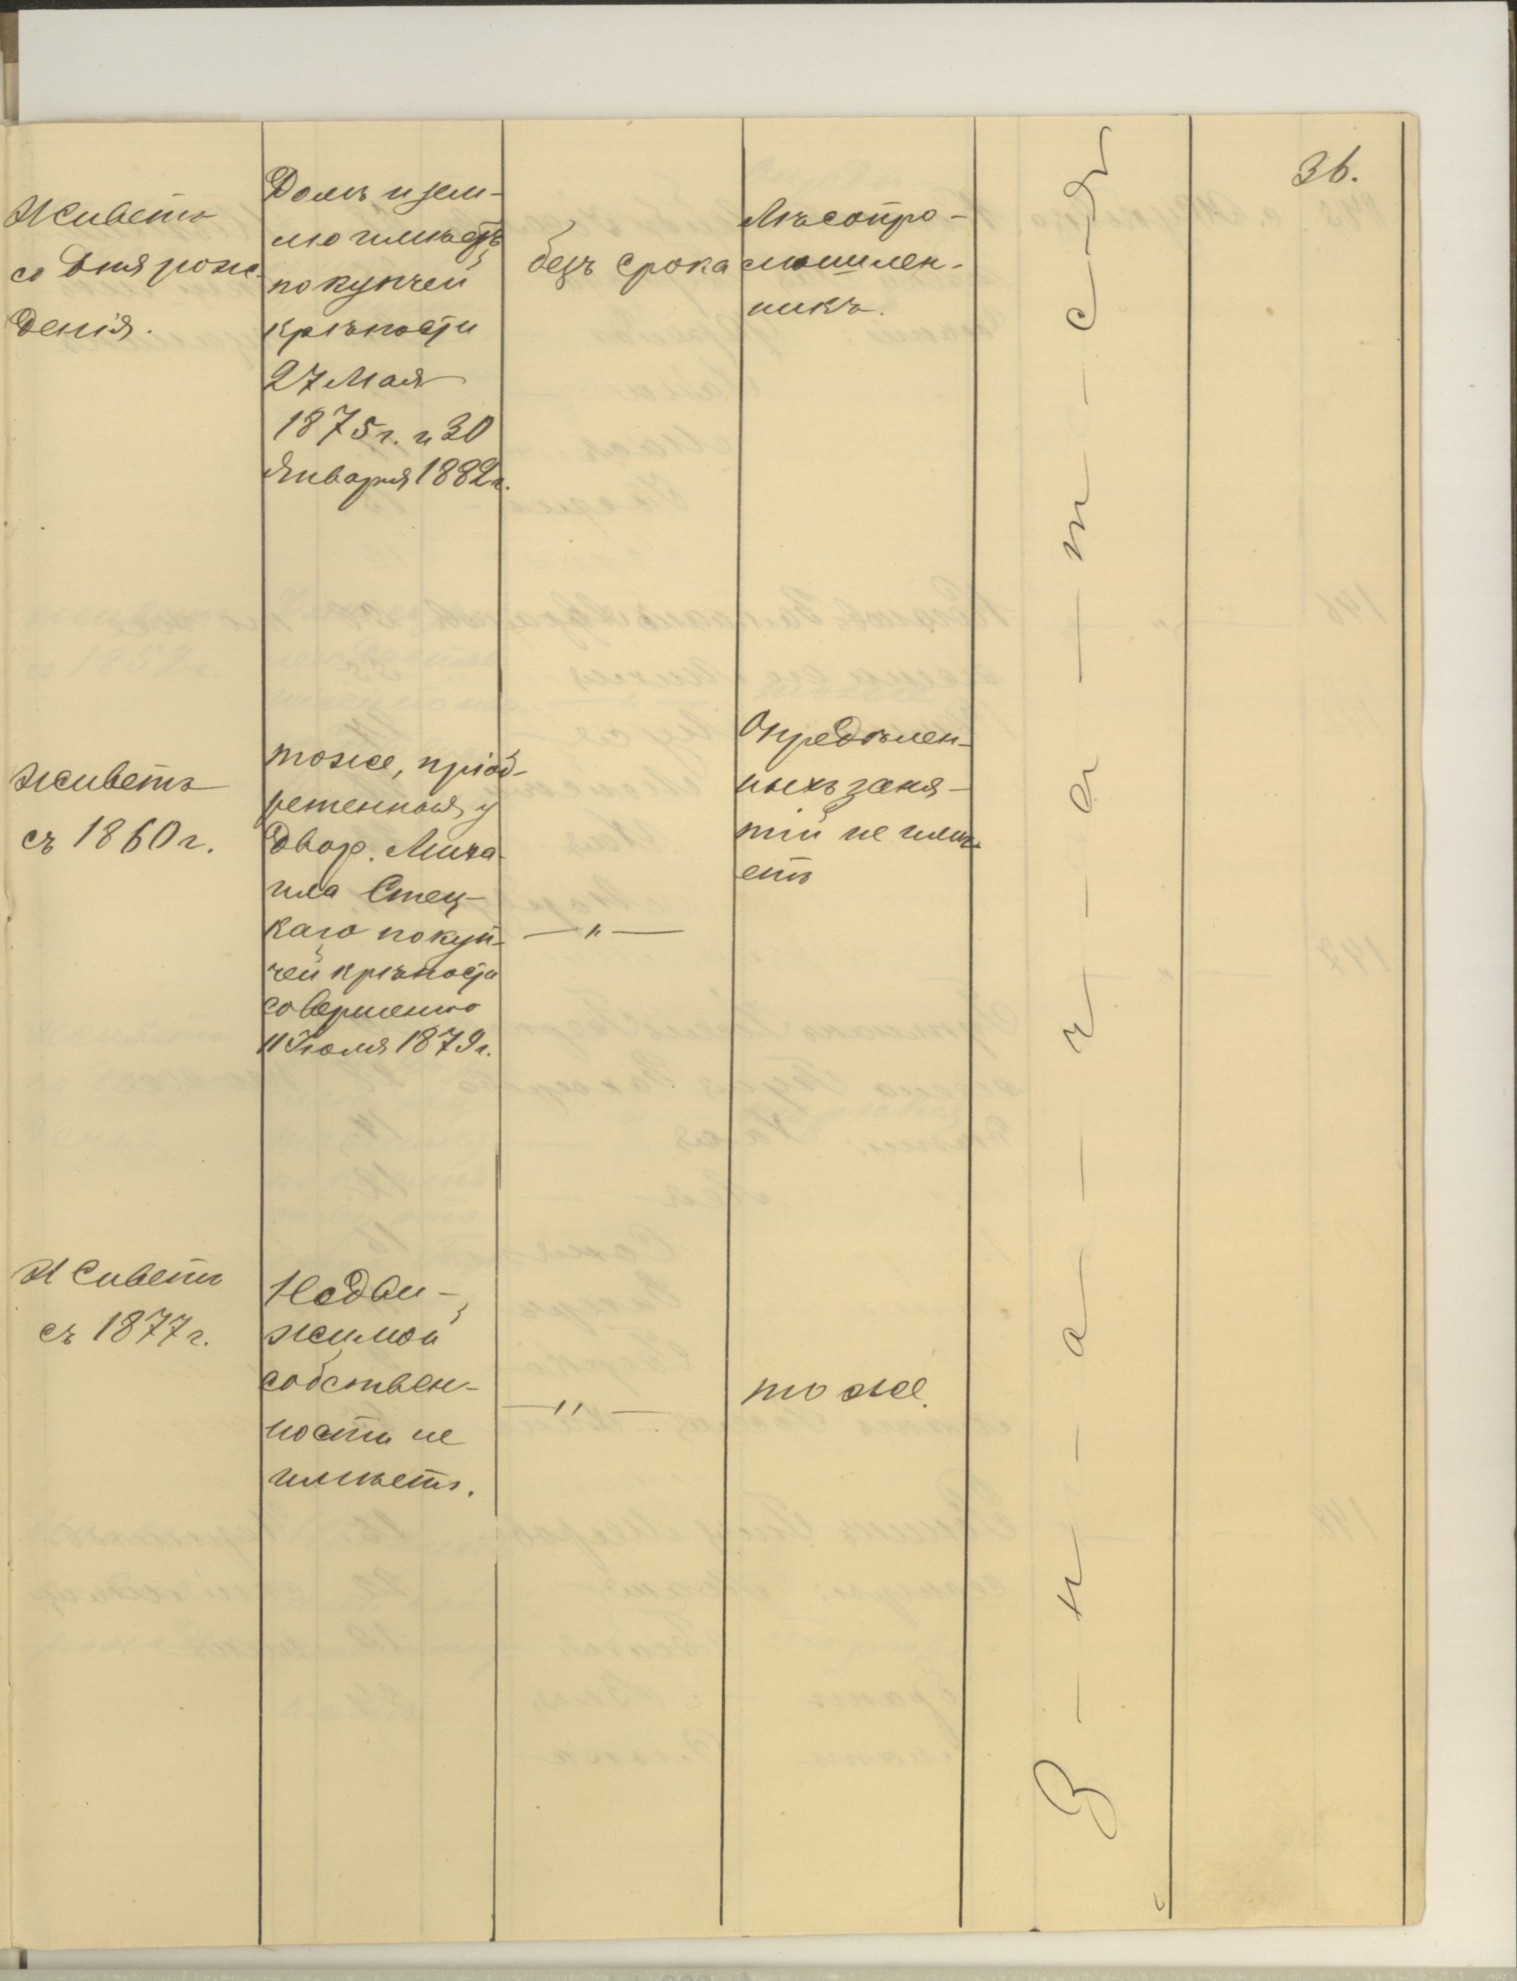 36.
Живетъ
со дня рож-
денія.
Домъ и зем-
лю имѣетъ
по купчей
крѣпости
27 Мая
1875 г. и 30
Января 1882 г.
безъ срока
Лѣсопро-
мышлен-
никъ.
Живетъ
съ 1860 г.
тоже, пріоб-
ретенная у
Двор. Миха-
ила Стец-
каго по куп-
чей крѣпости
совершенно
11 Іюля 1879 г.
— „ —
Опредѣлен-
ныхъ заня-
тій не имѣ-
етъ
Живетъ
съ 1877 г.
Недви-
жимой
собствен-
ности не
имѣетъ.
— „ —
тоже.
З - н - а - ч - а - т - с - я